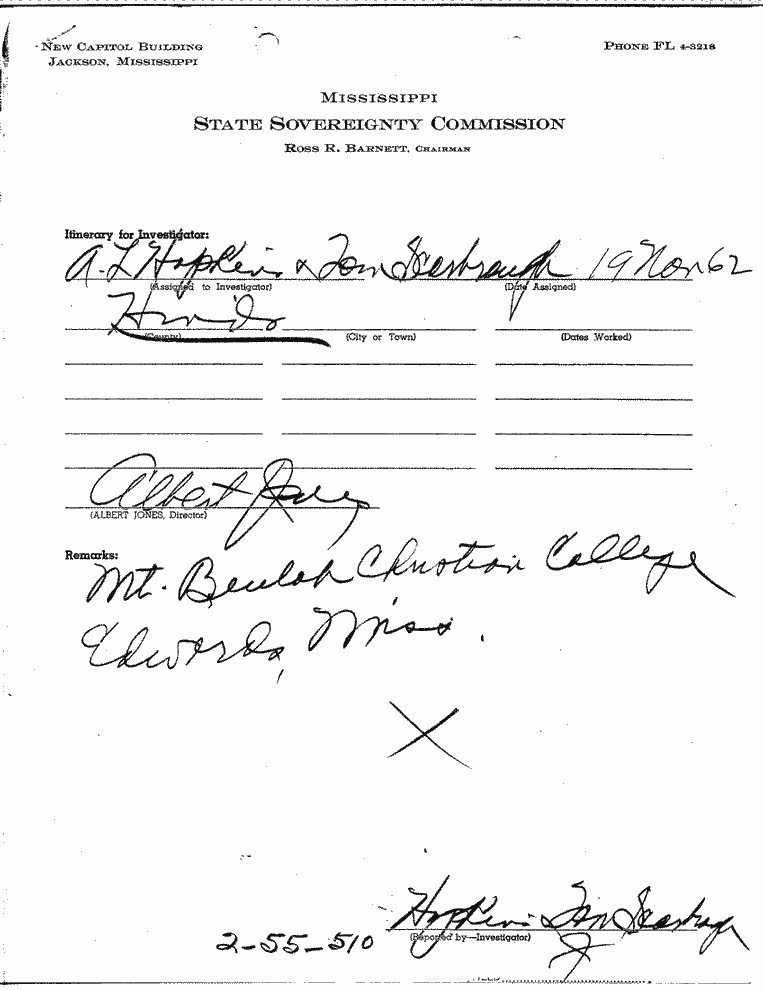 NEW CAPITOL BUILDING
JACKSON, MISSISSIPPI
PHONE FL 4-3218
MISSISSIPPI
STATE SOVEREIGNTY COMMISSION
ROSS R. BARNETT, CHAIRMAN
Itinerary for Investigator:
A. L Hopkins & Tom Scarbrough 19 Nov 62
(Assigned to Investigator) (Date Assigned)
Hinds
(County) (City or Town) (Dates Worked)
Albert Jones
(ALBERT JONES, Director)
Remarks:
Mt. Beulah Christian College
Edwards, Miss.
X
Hopkins Tom Scarbrough
(Reported by—Investigator)
2-55-510